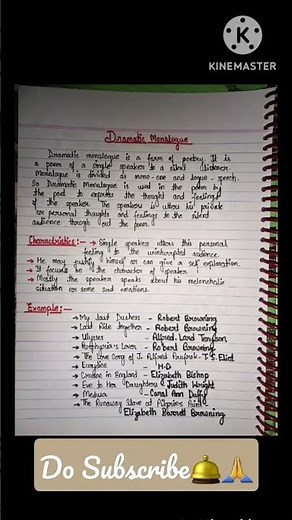 KINEMASTER
Dramatic Monologue
Dramatic monologue is a form of poetry. It is
a poem of a single speaker to a silent listener
Monologue is divided as mono-one and logue - speech.
So Dramatic Monologue is used in the poem by
the poet to express the thought and feelings
of the speaker. The speakers is utters his private
or personal thoughts and feelings to the silent
audience through out the poem.
Characteristics:- → Single speaker utters this personal
feeling to the uninterrupted audience.
→ He may justify himself or can give a self explanation.
→ It focuses on the character of speaker
→ Mostly the speaker speaks about his melancholic
situation or some sad emotions.
Example:-
→ My last Duchess - Robert Browning
→ Last Ride together - Robert Browning
→ Ulysses - Alfred Lord Tenyson
→ Porphyria's Lover - Robert Browning
→ The Love Song of J. Alfred Prufrock - T.S. Eliot
→ Eurydice - H.D
→ Crusoe in England - Elizabeth Bishop
→ Eve to Her Daughters Judith Wright
→ Medusa - Carol Ann Duffy
→ The Runaway Slave at Pilgrim's Point -
Elizabeth Barrett Browning
Do Subscribe